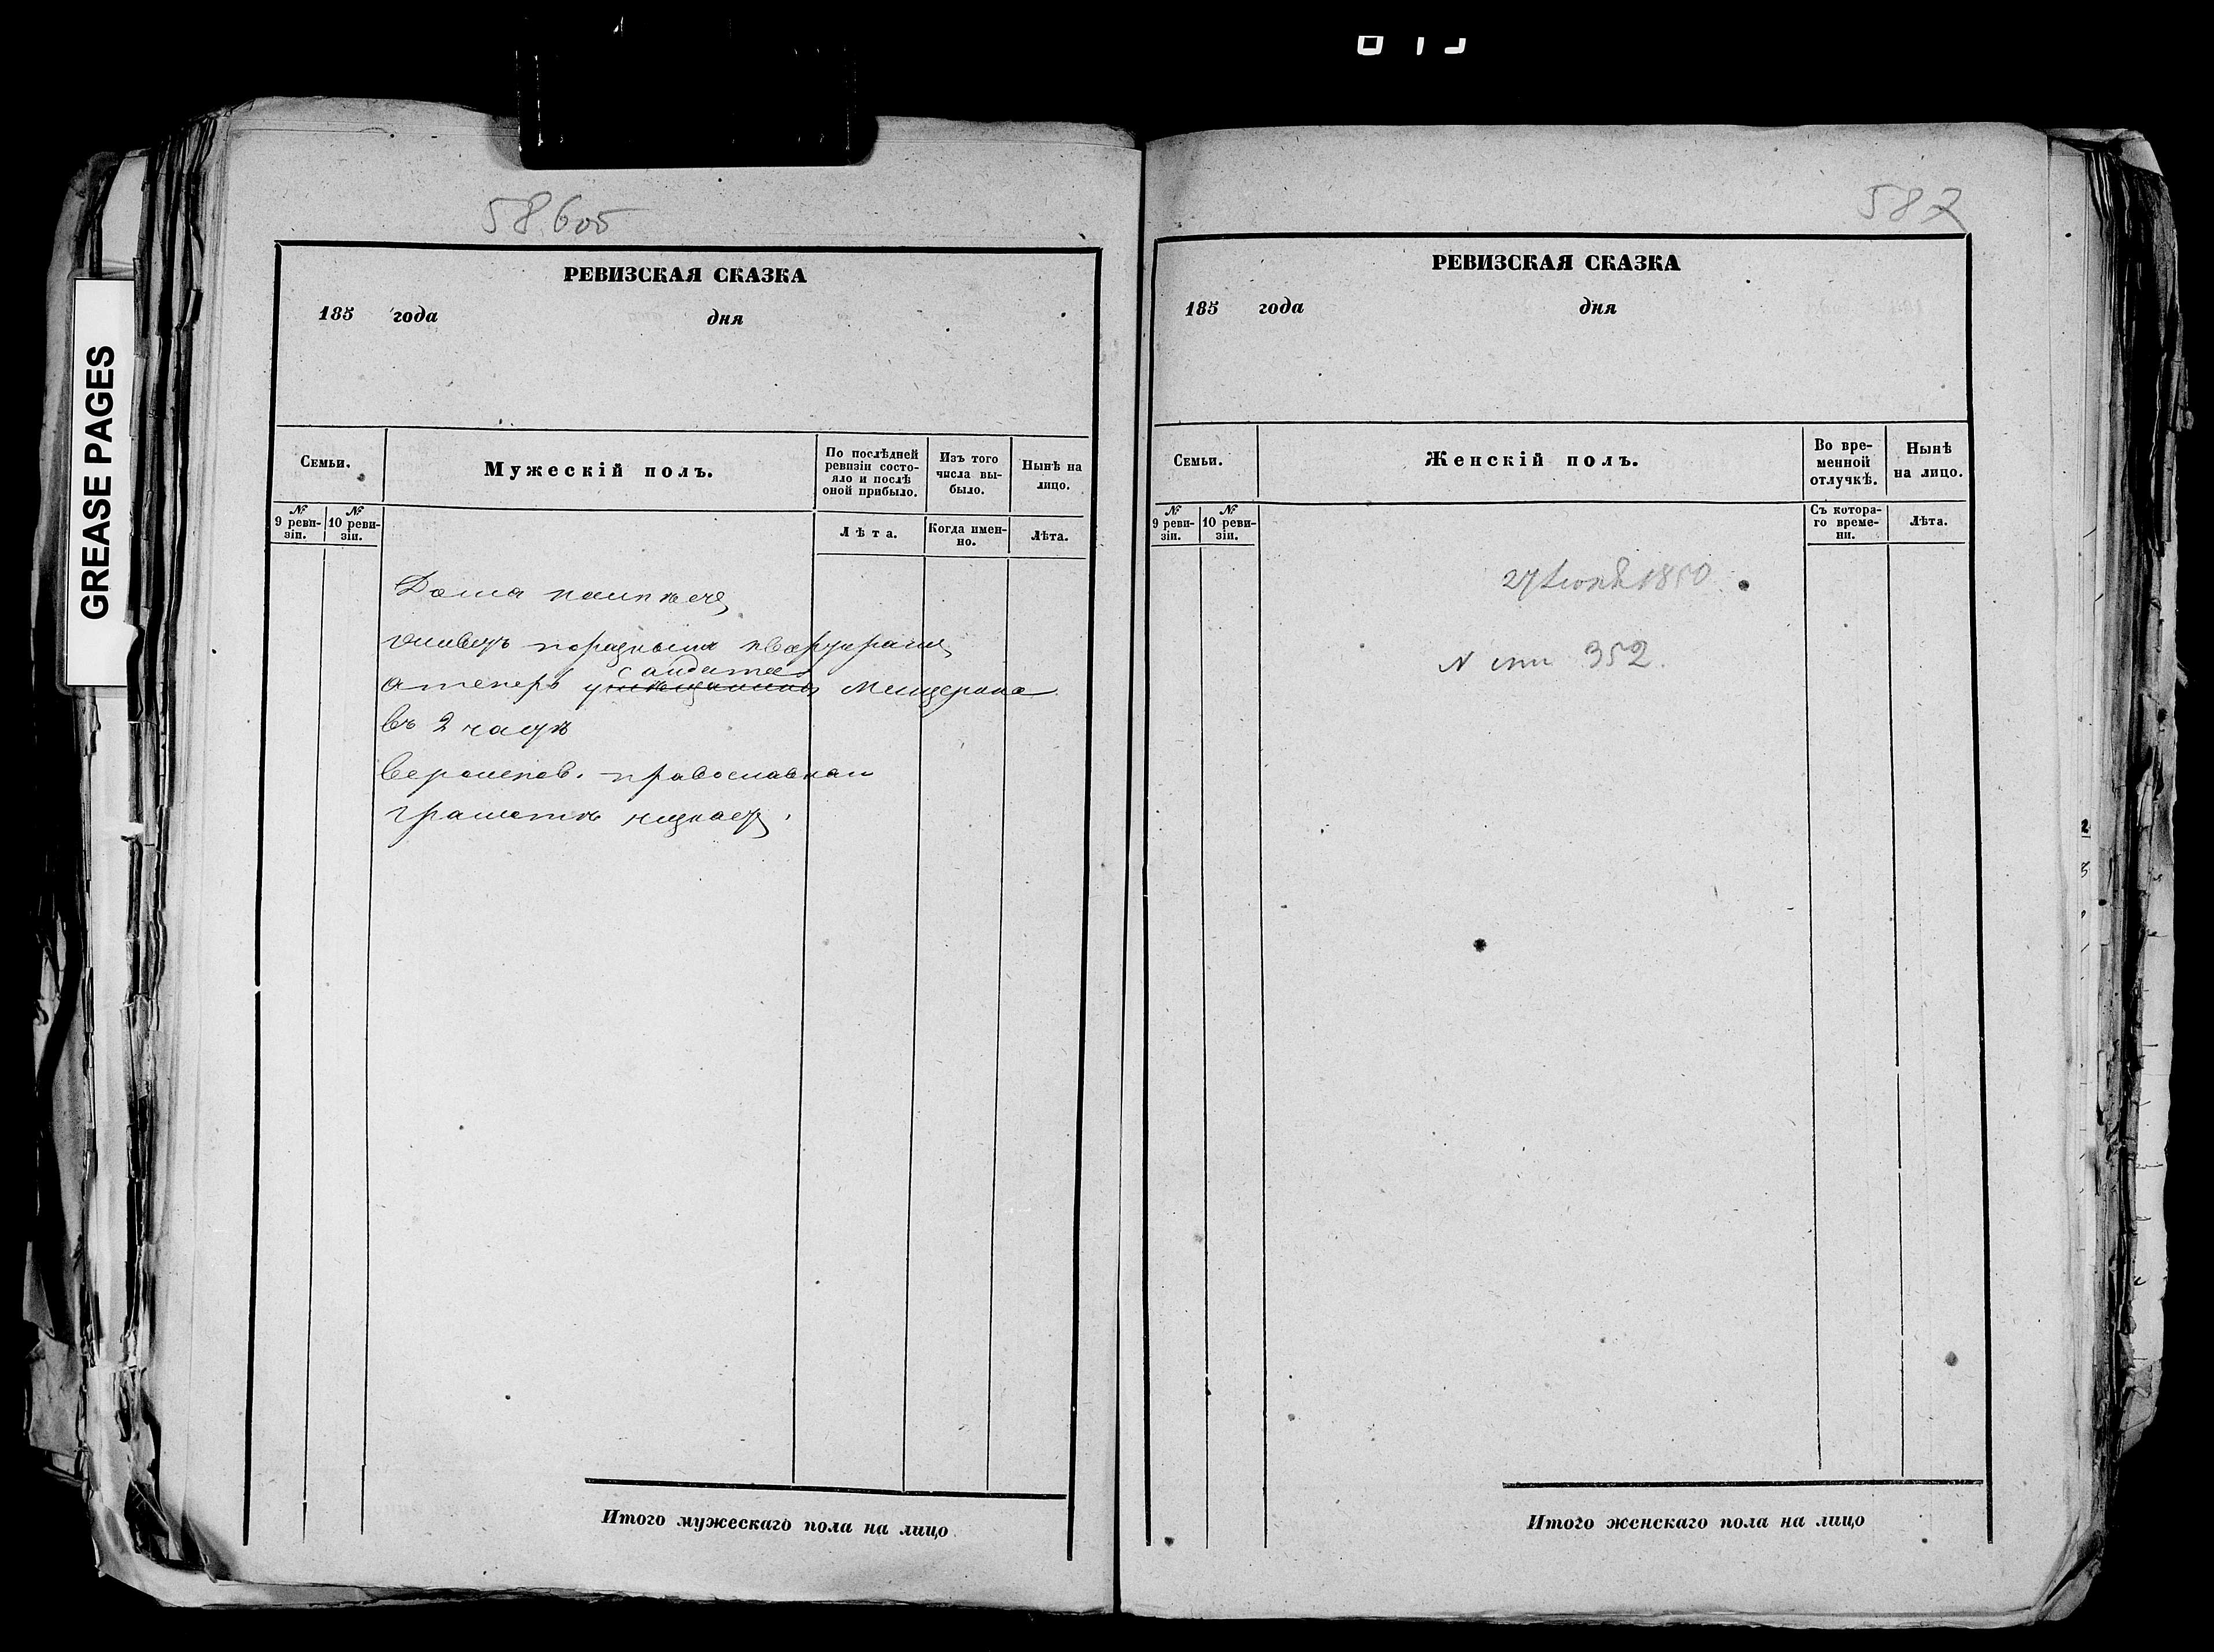 GREASE PAGES
58.6об
РЕВИЗСКАЯ СКАЗКА
185 года дня
Семьи.
Мужескій полъ.
По послѣдней ревизіи состо-
яло и послѣ
оной прибыло.
Изъ того
числа вы-
было.
Нынѣ на
лицо.
№ 9 реви-
зіи.
№ 10 реви-
зіи.
Лѣта.
Когда имен-
но.
Лѣта.
Дома неимѣетъ
живетъ поразнымъ квартирамъ
атеперь у солдатки Мещерина
въ 2 части
вероисповѣ. православнаи
граматѣ незнаетъ.
Итого мужескаго пола на лицо
587
РЕВИЗСКАЯ СКАЗКА
185 года дня
Семьи.
Женскій полъ.
Во вре-
менной
отлучкѣ.
Нынѣ
на лицо.
№ 9 реви-
зіи.
№ 10 реви-
зіи.
Съ котора-
го време-
ни.
Лѣта.
27 Іюня 1850
N 352.
Итого женскаго пола на лицо